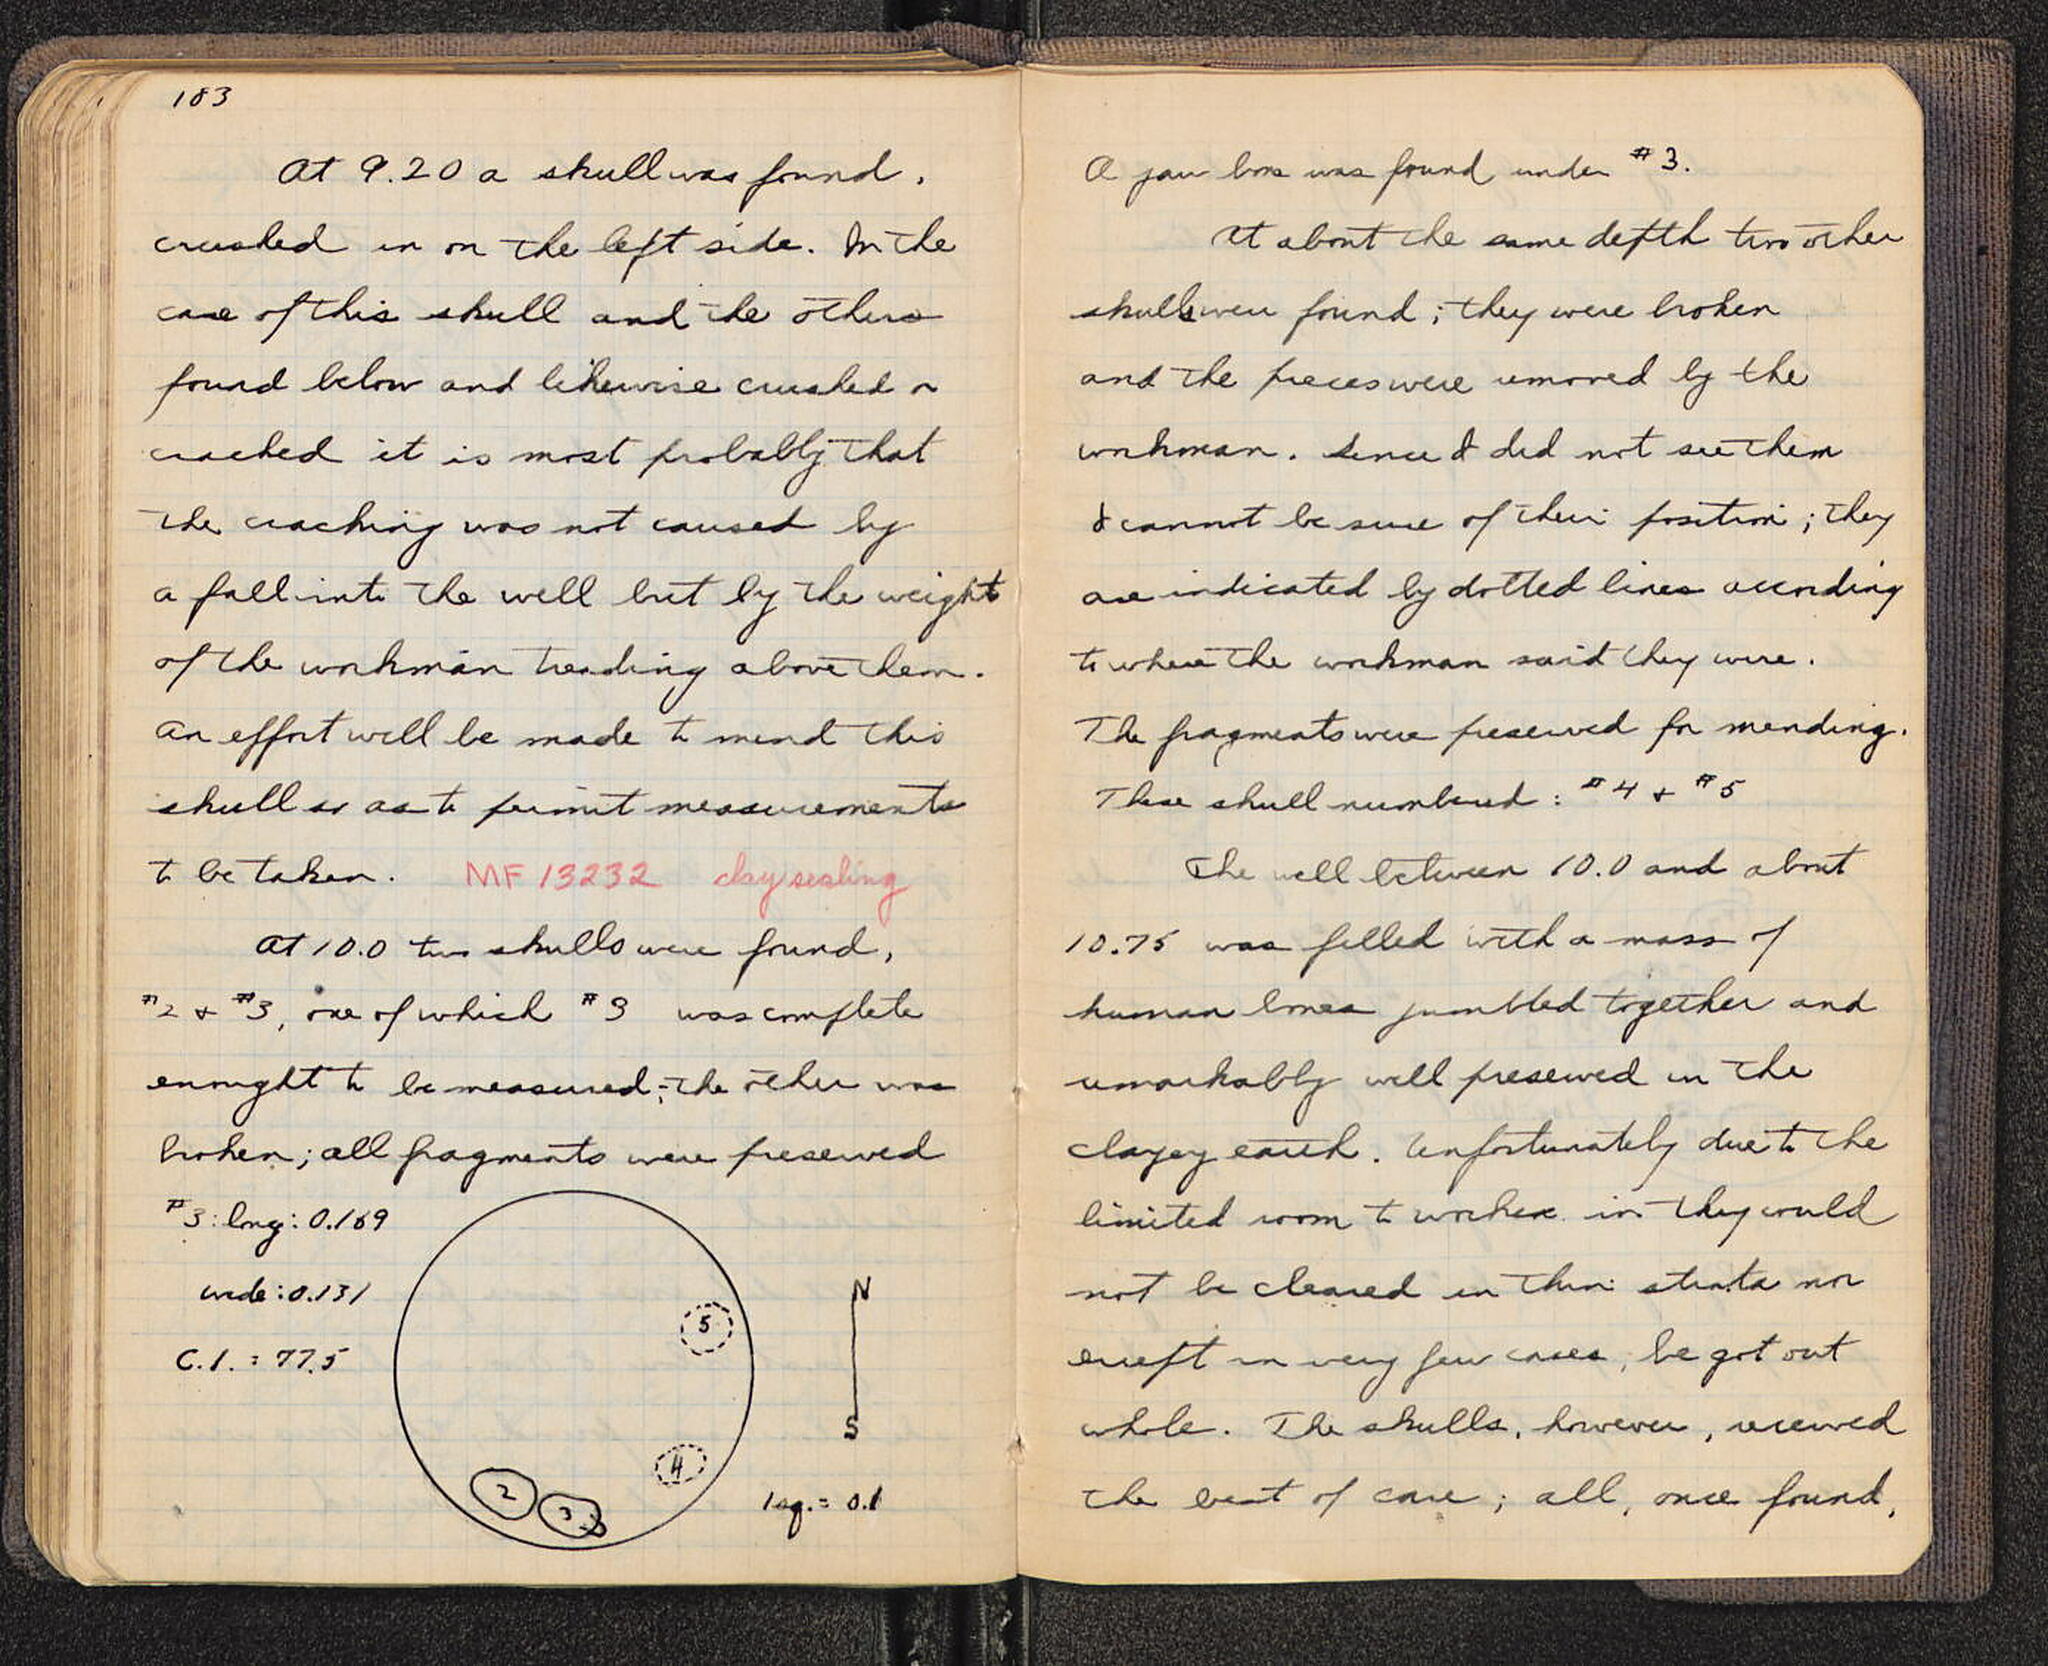 183
At 9.20 a skull was found,
crushed in on the left side. In the
case of this skull and the others
found below and likewise crushed or
cracked it is most probably that
the cracking was not caused by
a fall into the well but by the weight
of the workman treading above them.
An effort will be made to mend this
skull so as to permit measurements
to be taken. MF 13232 clay sealing
At 10.0 two skulls were found,
#2 + #3, one of which #3 was complete
enought to be measured; the other was
broken; all fragments were preserved
#3: long: 0.169
wide: 0.131
C.I. = 77.5
5
4
2
3
N
S
1 sq. = 0.1
A jaw bone was found under #3.
At about the same depth two other
skulls were found; they were broken
and the pieces were removed by the
workman. Since I did not see them
I cannot be sure of their position; they
are indicated by dotted lines according
to where the workman said they were.
The fragments were preserved for mending.
These skull numbered: #4 + #5
The well between 10.0 and about
10.75 was filled with a mass of
human bones jumbled together and
remarkably well preserved in the
clayey earth. Unfortunately due to the
limited room to work in they could
not be cleared in their strata nor
except in very few cases, be got out
whole. The skulls, however, received
the best of care; all, once found,